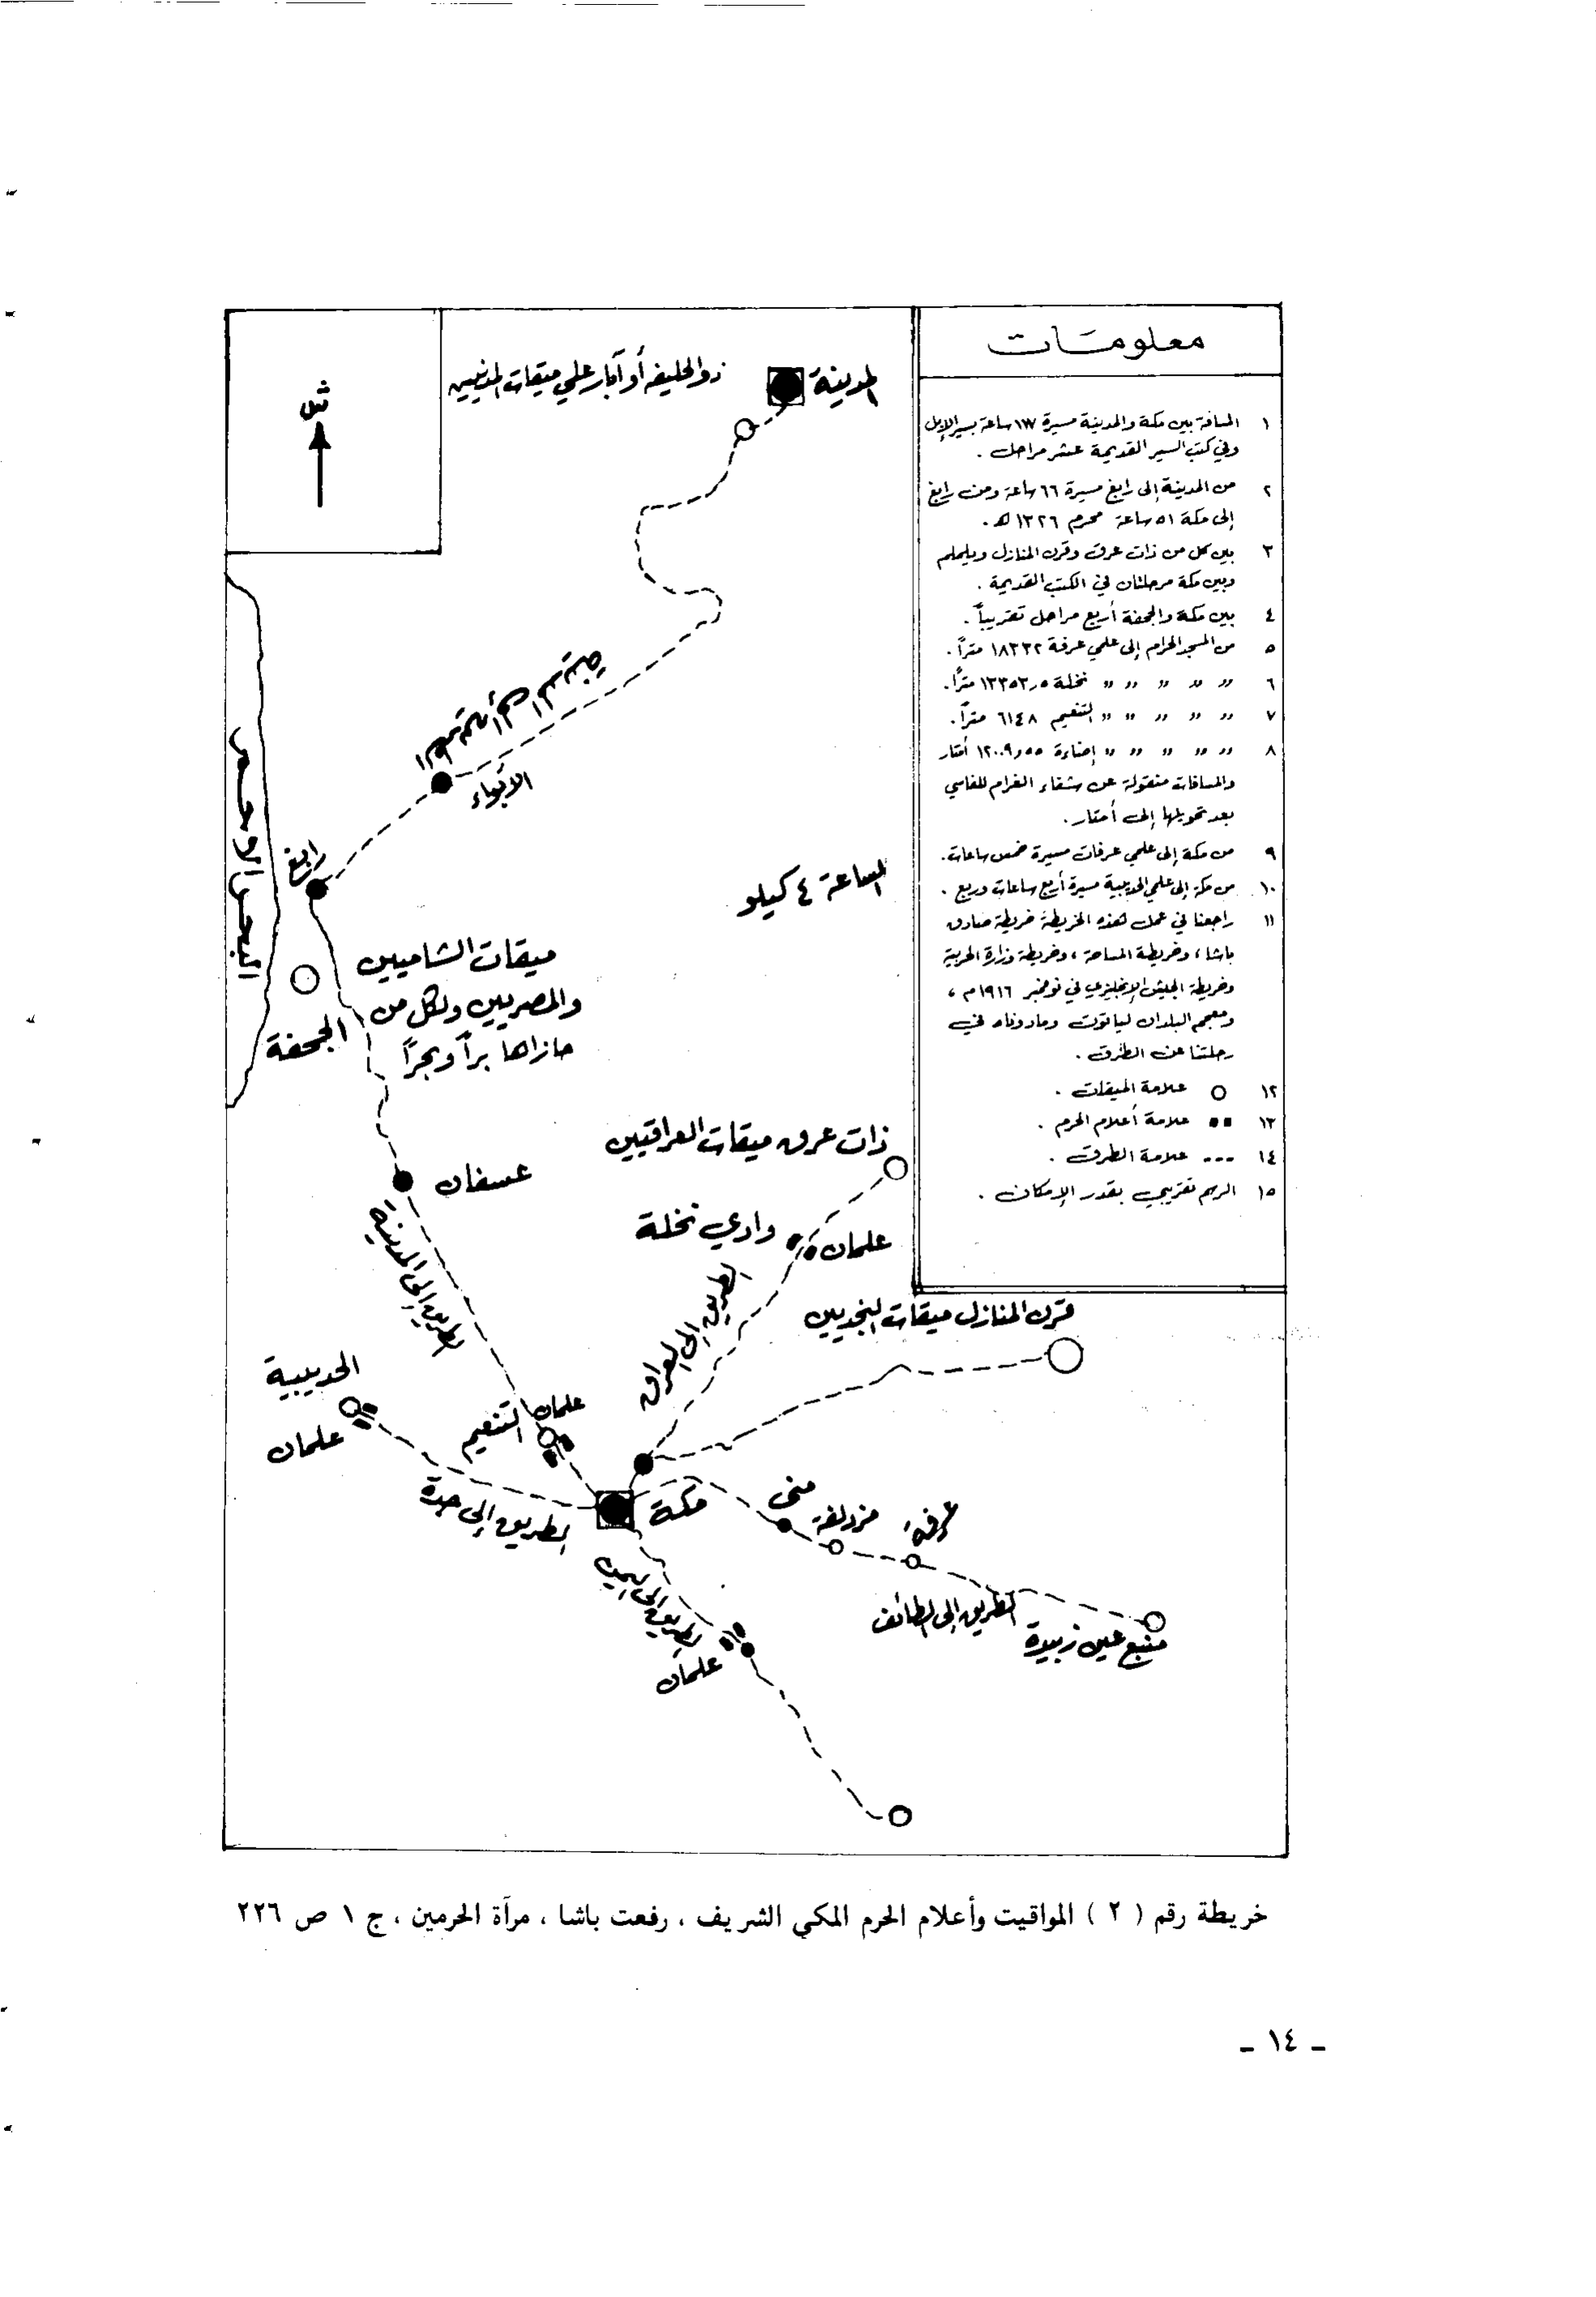 معلومات
١ المسافة بين مكة والمدينة مسيرة ١١٧ ساعة بسير الإبل
وفي كتب السير القديمة عشر مراحل .
٢ من المدينة إلى رابغ مسيرة ٦٦ ساعة ومن رابغ
إلى مكة ٥١ ساعة محرم ١٣٢٦ هـ .
٣ بين كل من ذات عرق وقرن المنازل ويلملم
وبين مكة مرحلتان في الكتب القديمة .
٤ بين مكة والجحفة أربع مراحل تقريباً .
٥ من المسجد الحرام إلى علمي عرفة ١٨٣٣٢ متراً .
٦ " " " " " نخلة ١٣٣٥٣٫٥ متراً .
٧ " " " " " التنعيم ٦١٤٨ متراً .
٨ " " " " " إضاءة ١٢٠٠٩٫٥٥ أمتار
والمسافات منقولة عن شفاء الغرام للفاسي
بعد تحويلها إلى أمتار .
٩ من مكة إلى علمي عرفات مسيرة خمس ساعات .
١٠ من مكة إلى علمي الحديبية مسيرة أربع ساعات وربع .
١١ راجعنا في عمل هذه الخريطة خريطة صادق
باشا ، وخريطة المساحة ، وخريطة وزارة الحربية
وخريطة الجيش الإنجليزي في نوفمبر ١٩١٦م ،
ومعجم البلدان لياقوت وما دوناه في
رحلتنا عن الطرق .
١٢ علامة الميقات .
١٣ علامة أعلام الحرم .
١٤ --- علامة الطرق .
١٥ الرسم تقريبي بقدر الإمكان .
المدينة
ذو الحليفة أو آبار علي ميقات المدنيين
الأبواء
رابغ
البحر الأحمر
الساعة ٤ كيلو
ميقات الشاميين
والمصريين ولكل من
حازاها براً وبحراً
الجحفة
ذات عرق ميقات العراقيين
عسفان
علمان
وادي نخلة
الطريق إلى المدينة
الطريق إلى العراق
قرن المنازل ميقات النجديين
الحديبية
علمان
علمان
التنعيم
الطريق إلى جدة
مكة
منى
مزدلفة
عرفة
الطريق إلى الطائف
منبع عين زبيدة
الطريق إلى اليمن
علمان
خريطة رقم ( ٢ ) المواقيت وأعلام الحرم المكي الشريف ، رفعت باشا ، مرآة الحرمين ، ج ١ ص ٢٢٦
- ١٤ -